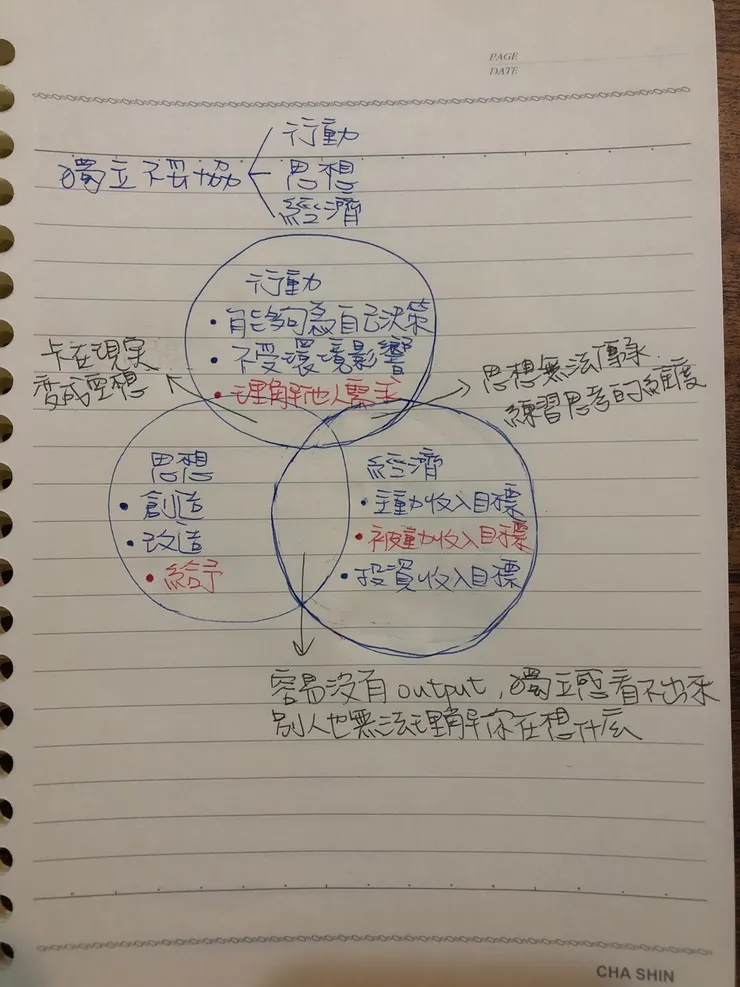 PAGE
DATE
行動
獨立不妥協
思想
經濟
行動
• 能夠為自己決策
• 不受環境影響
• 理解他人需求
卡在現実
變成空想
思想無法傳承.
練習思考的維度
思想
• 創造
• 改造
• 給予
經濟
• 主動收入目標
• 被動收入目標
• 投資收入目標
容易沒有 output, 獨立感看不出來
別人也無法理解你在想什麼
CHA SHIN